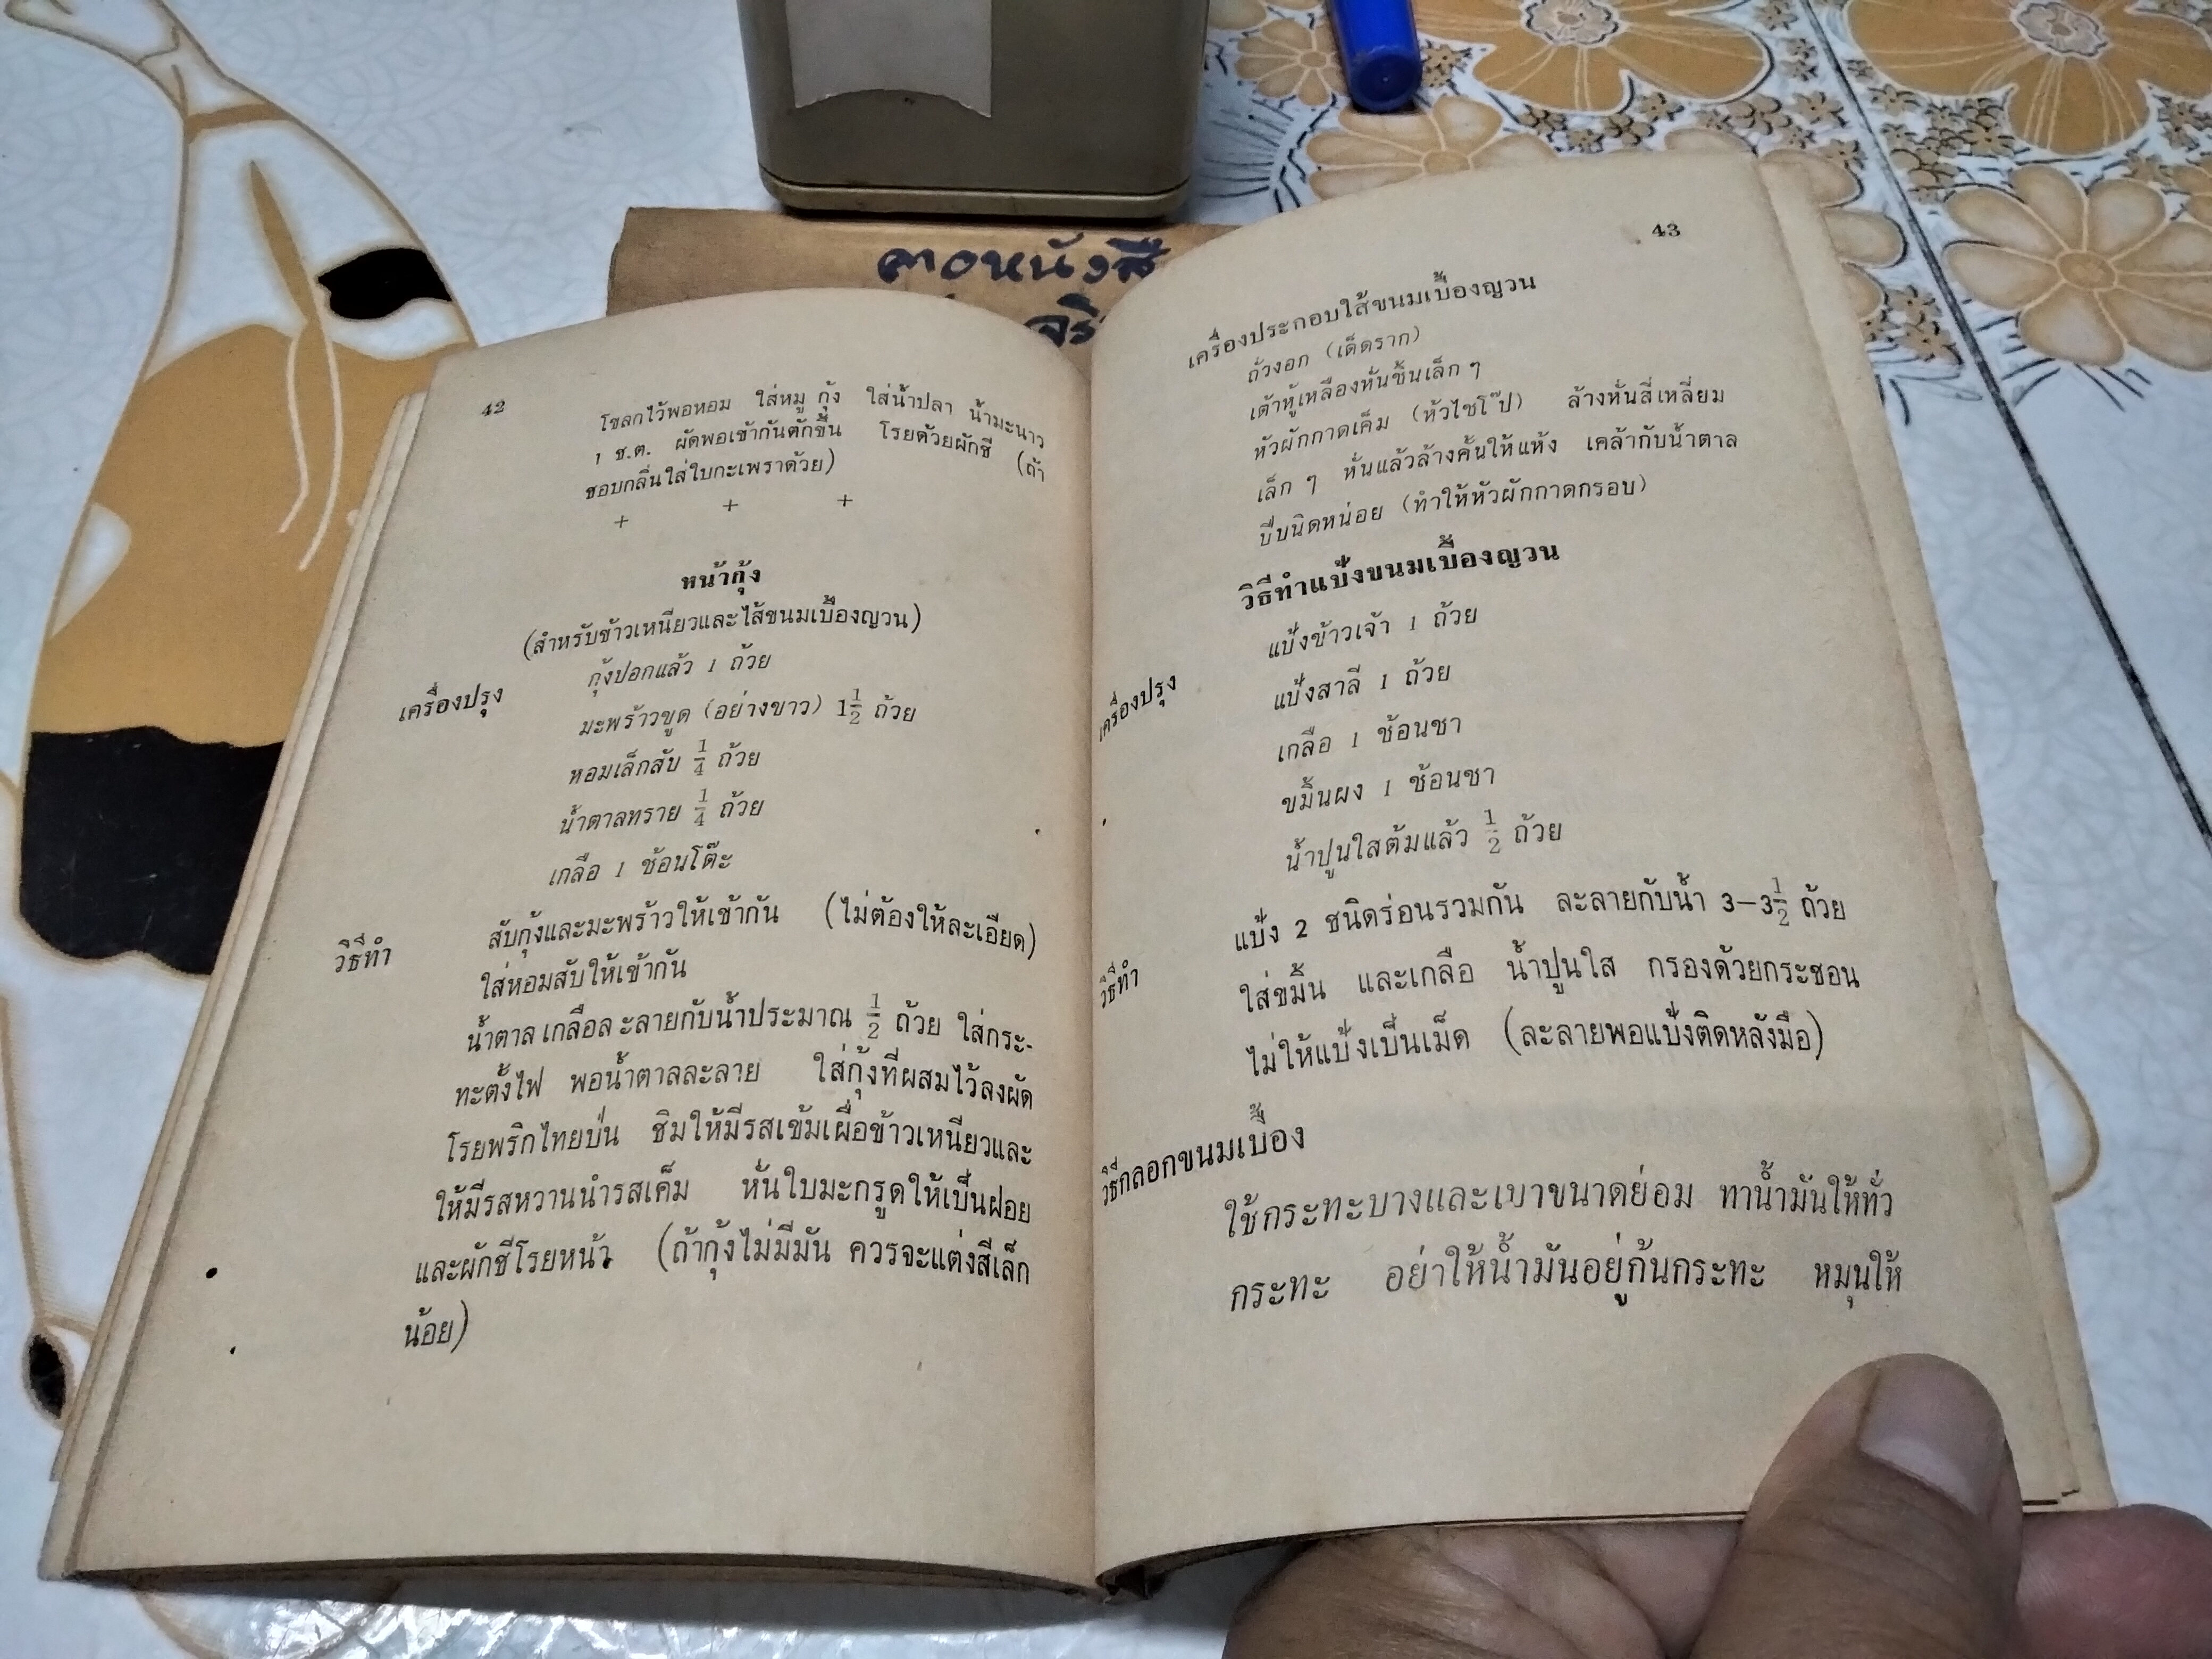 ดาวหนังสือ
จริ
42
โขลกไว้พอหอม ใส่หมู กุ้ง ใส่น้ำปลา น้ำมะนาว
1 ช.ต. ผัดพอเข้ากันตักขึ้น โรยด้วยผักชี (ถ้า
ชอบกลิ่นใส่ใบกะเพราด้วย)
+ + +
หน้ากุ้ง
(สำหรับข้าวเหนียวและไส้ขนมเบื้องญวน)
เครื่องปรุง กุ้งปอกแล้ว 1 ถ้วย
มะพร้าวขูด (อย่างขาว) 1 1/2 ถ้วย
หอมเล็กสับ 1/4 ถ้วย
น้ำตาลทราย 1/4 ถ้วย
เกลือ 1 ช้อนโต๊ะ
วิธีทำ สับกุ้งและมะพร้าวให้เข้ากัน (ไม่ต้องให้ละเอียด)
ใส่หอมสับให้เข้ากัน
น้ำตาล เกลือละลายกับน้ำประมาณ 1/2 ถ้วย ใส่กระ-
ทะตั้งไฟ พอน้ำตาลละลาย ใส่กุ้งที่ผสมไว้ลงผัด
โรยพริกไทยป่น ชิมให้มีรสเข้มเผื่อข้าวเหนียวและ
ให้มีรสหวานนำรสเค็ม หั่นใบมะกรูดให้เป็นฝอย
และผักชีโรยหน้า (ถ้ากุ้งไม่มีมัน ควรจะแต่งสีเล็ก
น้อย)
43
เครื่องประกอบใส้ขนมเบื้องญวน
ถั่วงอก (เด็ดราก)
เต้าหู้เหลืองหั่นชิ้นเล็ก ๆ
หัวผักกาดเค็ม (หัวไชโป๊) ล้างหั่นสี่เหลี่ยม
เล็ก ๆ หั่นแล้วล้างคั้นให้แห้ง เคล้ากับน้ำตาล
ปี๊บนิดหน่อย (ทำให้หัวผักกาดกรอบ)
วิธีทำแป้งขนมเบื้องญวน
เครื่องปรุง แป้งข้าวเจ้า 1 ถ้วย
แป้งสาลี 1 ถ้วย
เกลือ 1 ช้อนชา
ขมิ้นผง 1 ช้อนชา
น้ำปูนใสต้มแล้ว 1/2 ถ้วย
วิธีทำ แป้ง 2 ชนิดร่อนรวมกัน ละลายกับน้ำ 3–3 1/2 ถ้วย
ใส่ขมิ้น และเกลือ น้ำปูนใส กรองด้วยกระชอน
ไม่ให้แป้งเป็นเม็ด (ละลายพอแป้งติดหลังมือ)
วิธีกลอกขนมเบื้อง
ใช้กระทะบางและเบาขนาดย่อม ทาน้ำมันให้ทั่ว
กระทะ อย่าให้น้ำมันอยู่ก้นกระทะ หมุนให้